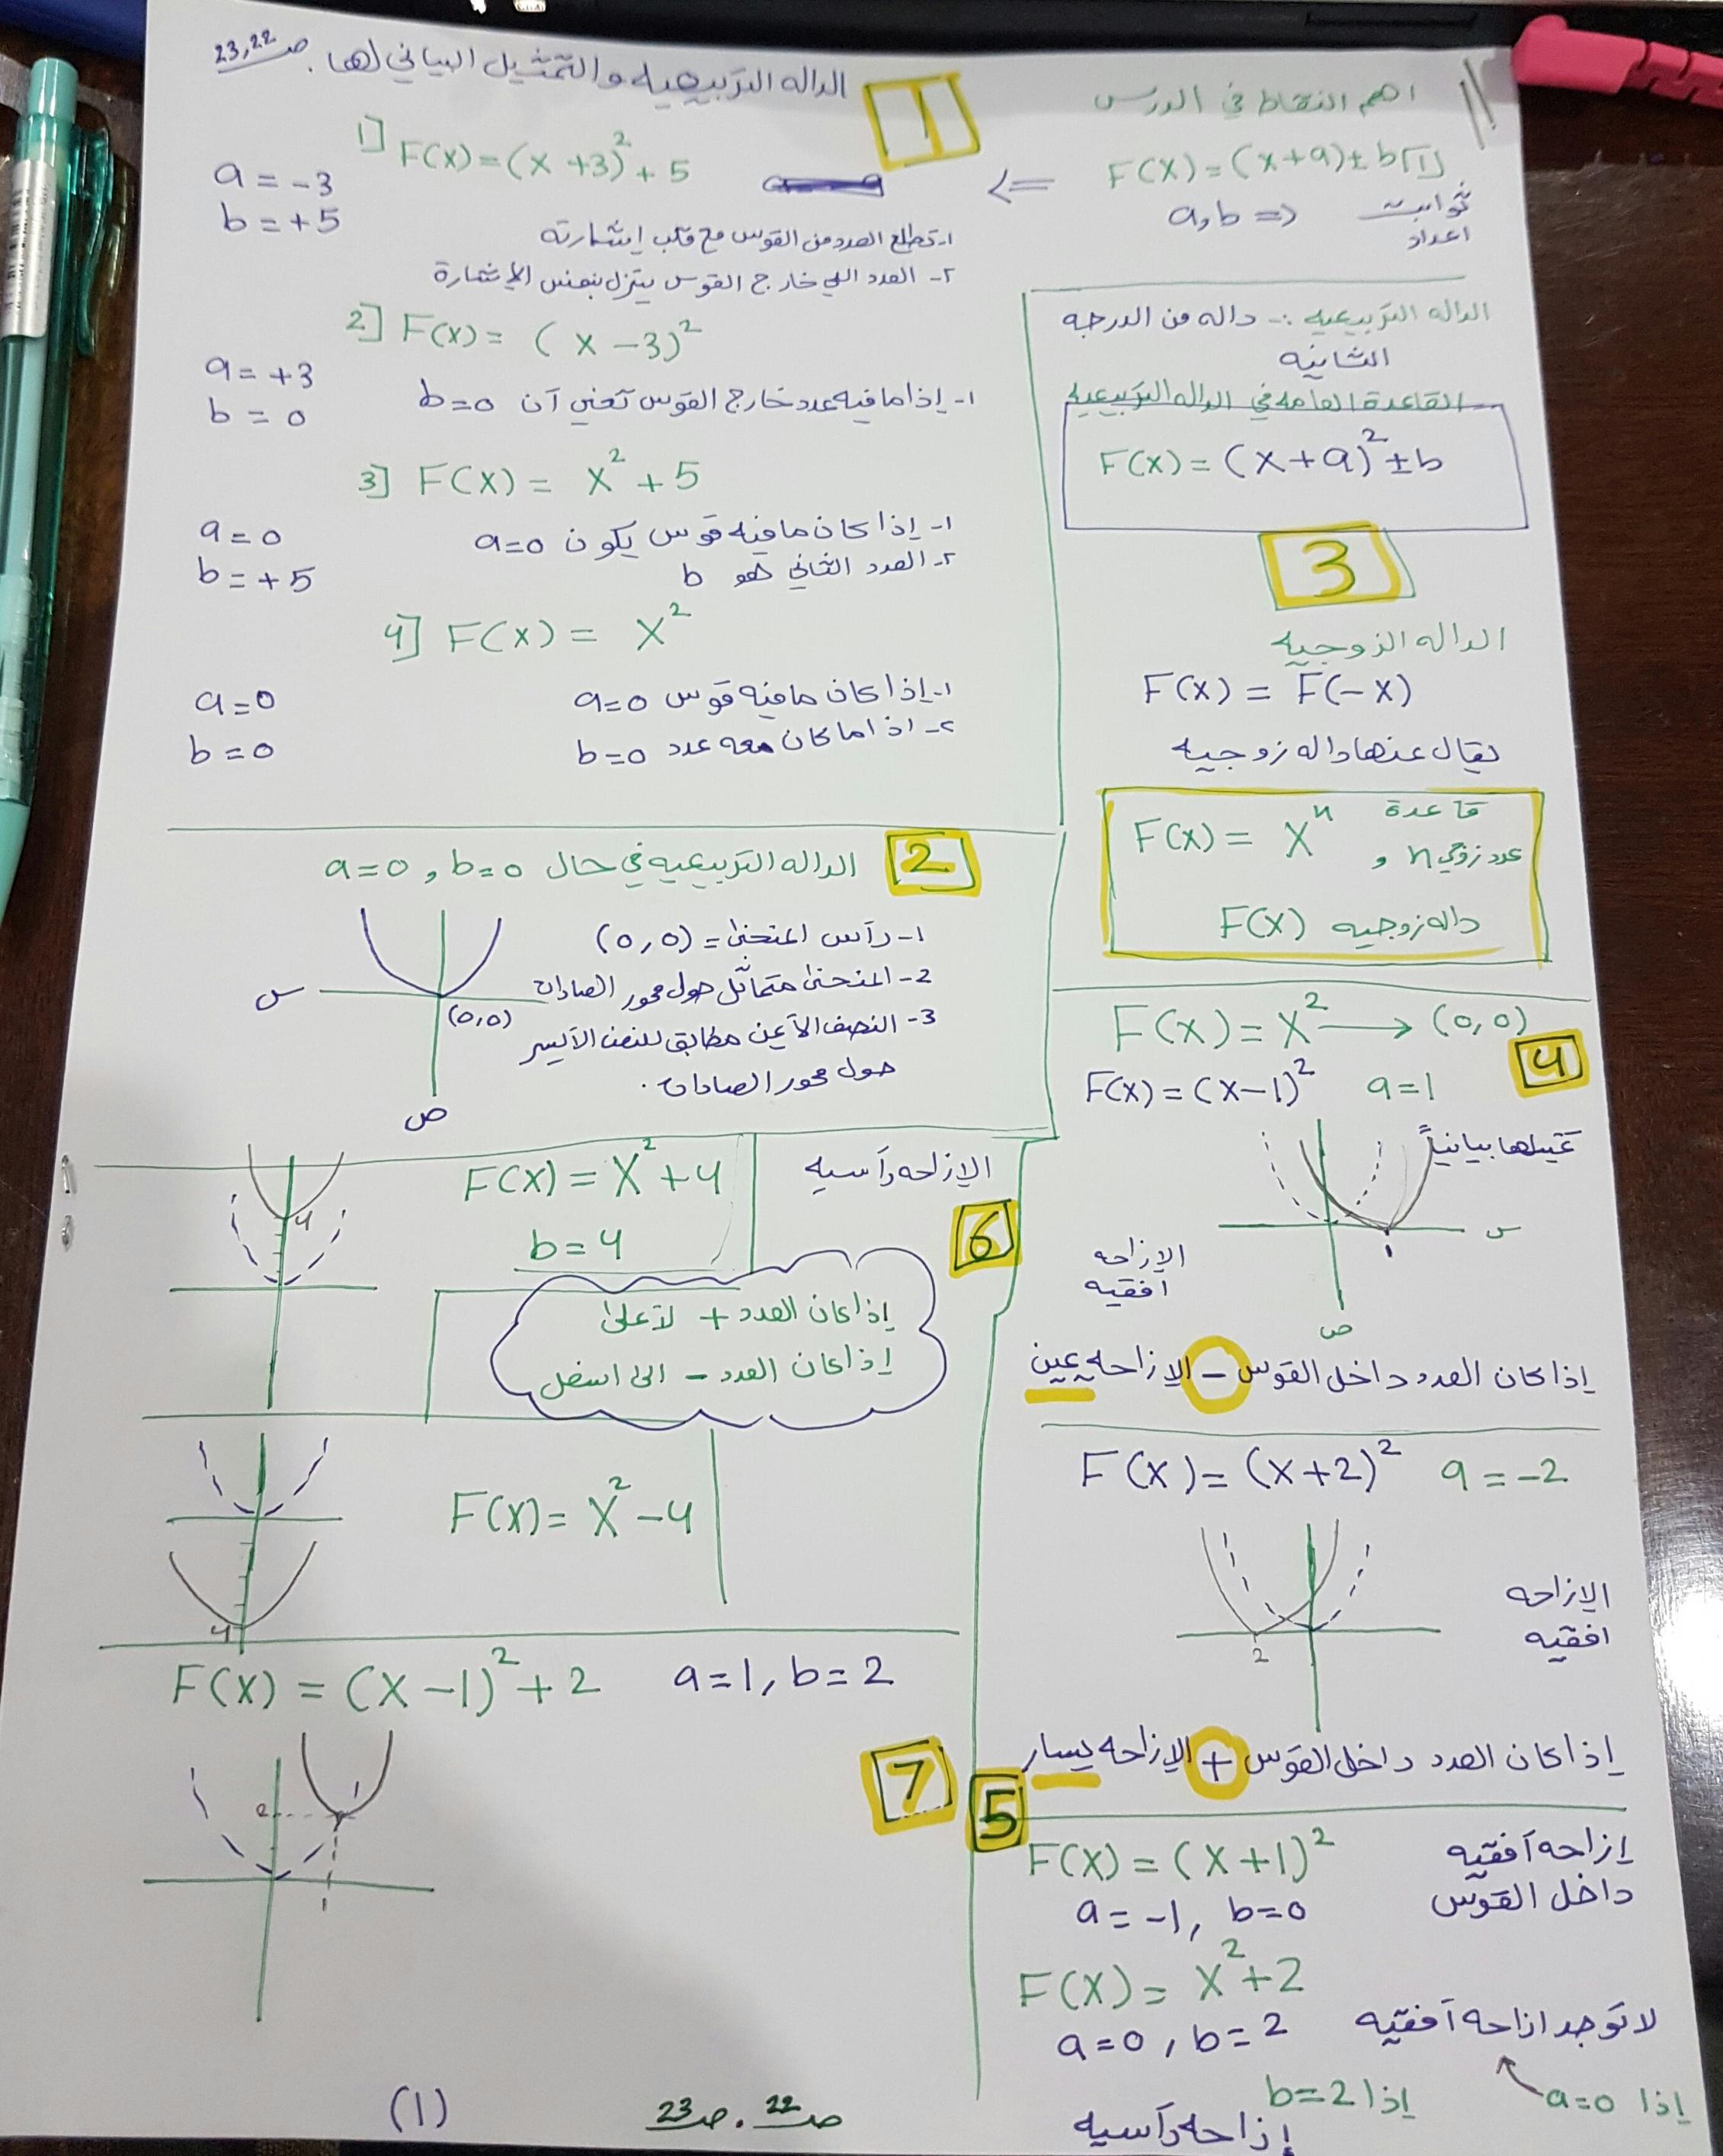 الداله التربيعيه والتمثيل البياني لها. صـ 22, 23
اهم النقاط في الدرس
F(x)=(x+a)±b [1]
a,b => ثوابت
اعداد
1
1] F(x)=(x+3)²+5
a=-3
b=+5
1- تطلع العدد من القوس مع قلب إشارته
٢- العدد اللي خارج القوس ينزل بنفس الإشارة
2] F(x)= (x-3)²
a=+3
b=0
1- إذا مافيه عدد خارج القوس تعني أن b=0
3] F(x)= x²+5
a=0
b=+5
1- إذا كان مافيه قوس يكون a=0
٢- العدد الثاني هو b
4] F(x)= x²
a=0
b=0
1- إذا كان مافيه قوس a=0
٢- اذا ما كان معه عدد b=0
الداله التربيعيه :- داله من الدرجه
الثانيه
القاعدة العامه في الداله التربيعيه
F(x)=(x+a)²±b
2
الداله التربيعيه في حال a=0, b=0
1- رأس المنحنى = (0,0)
2- المنحنى متماثل حول محور الصادات
3- النصف الأيمن مطابق للنصف الأيسر
حول محور الصادات.
س
(0,0)
ص
3
الداله الزوجيه
F(x)=F(-x)
يقال عنها داله زوجيه
قاعدة
F(x)= xⁿ , n عدد زوجي
F(x) داله زوجيه
4
F(x)=x² → (0,0)
F(x)=(x-1)² a=1
تمثيلها بيانياً
س
1
ص
الإزاحه
أفقيه
إذا كان العدد داخل القوس - الإزاحه يمين
F(x)=(x+2)² a=-2
2
الإزاحه
افقيه
إذا كان العدد داخل القوس + الإزاحه يسار
5
F(x)=(x+1)²
إزاحه أفقيه
داخل القوس
a=-1, b=0
F(x)= x²+2
a=0, b=2
لا توجد ازاحه أفقيه
إذا a=0
إذا b=2
إزاحه رأسيه
6
الإزاحه رأسيه
F(x)=x²+4
b=4
4
إذا كان العدد + لأعلى
إذا كان العدد - الى اسفل
F(x)=x²-4
4
7
F(x)=(x-1)²+2 a=1, b=2
2
1
(1)
صـ 22. صـ 23